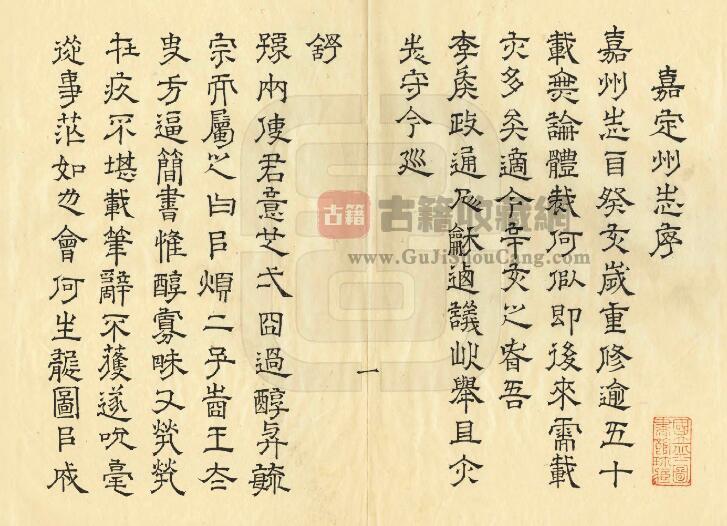 嘉定州志序
嘉州志自癸亥歲重修逾五十
載無論體裁何似即後來需載
亦多矣適今辛亥之春吾
李侯政通人龢遹議舉且亦
守今巡
一
舒
兩使君意過醇
宗而屬之㠯煩二
史方逼簡書惟醇寡昧又煢煢
在疚不堪載筆辭不獲遂吮毫
從事茫如也會何生龍圖㠯戚
古籍
古籍收藏網
www.GuJiShouCang.com